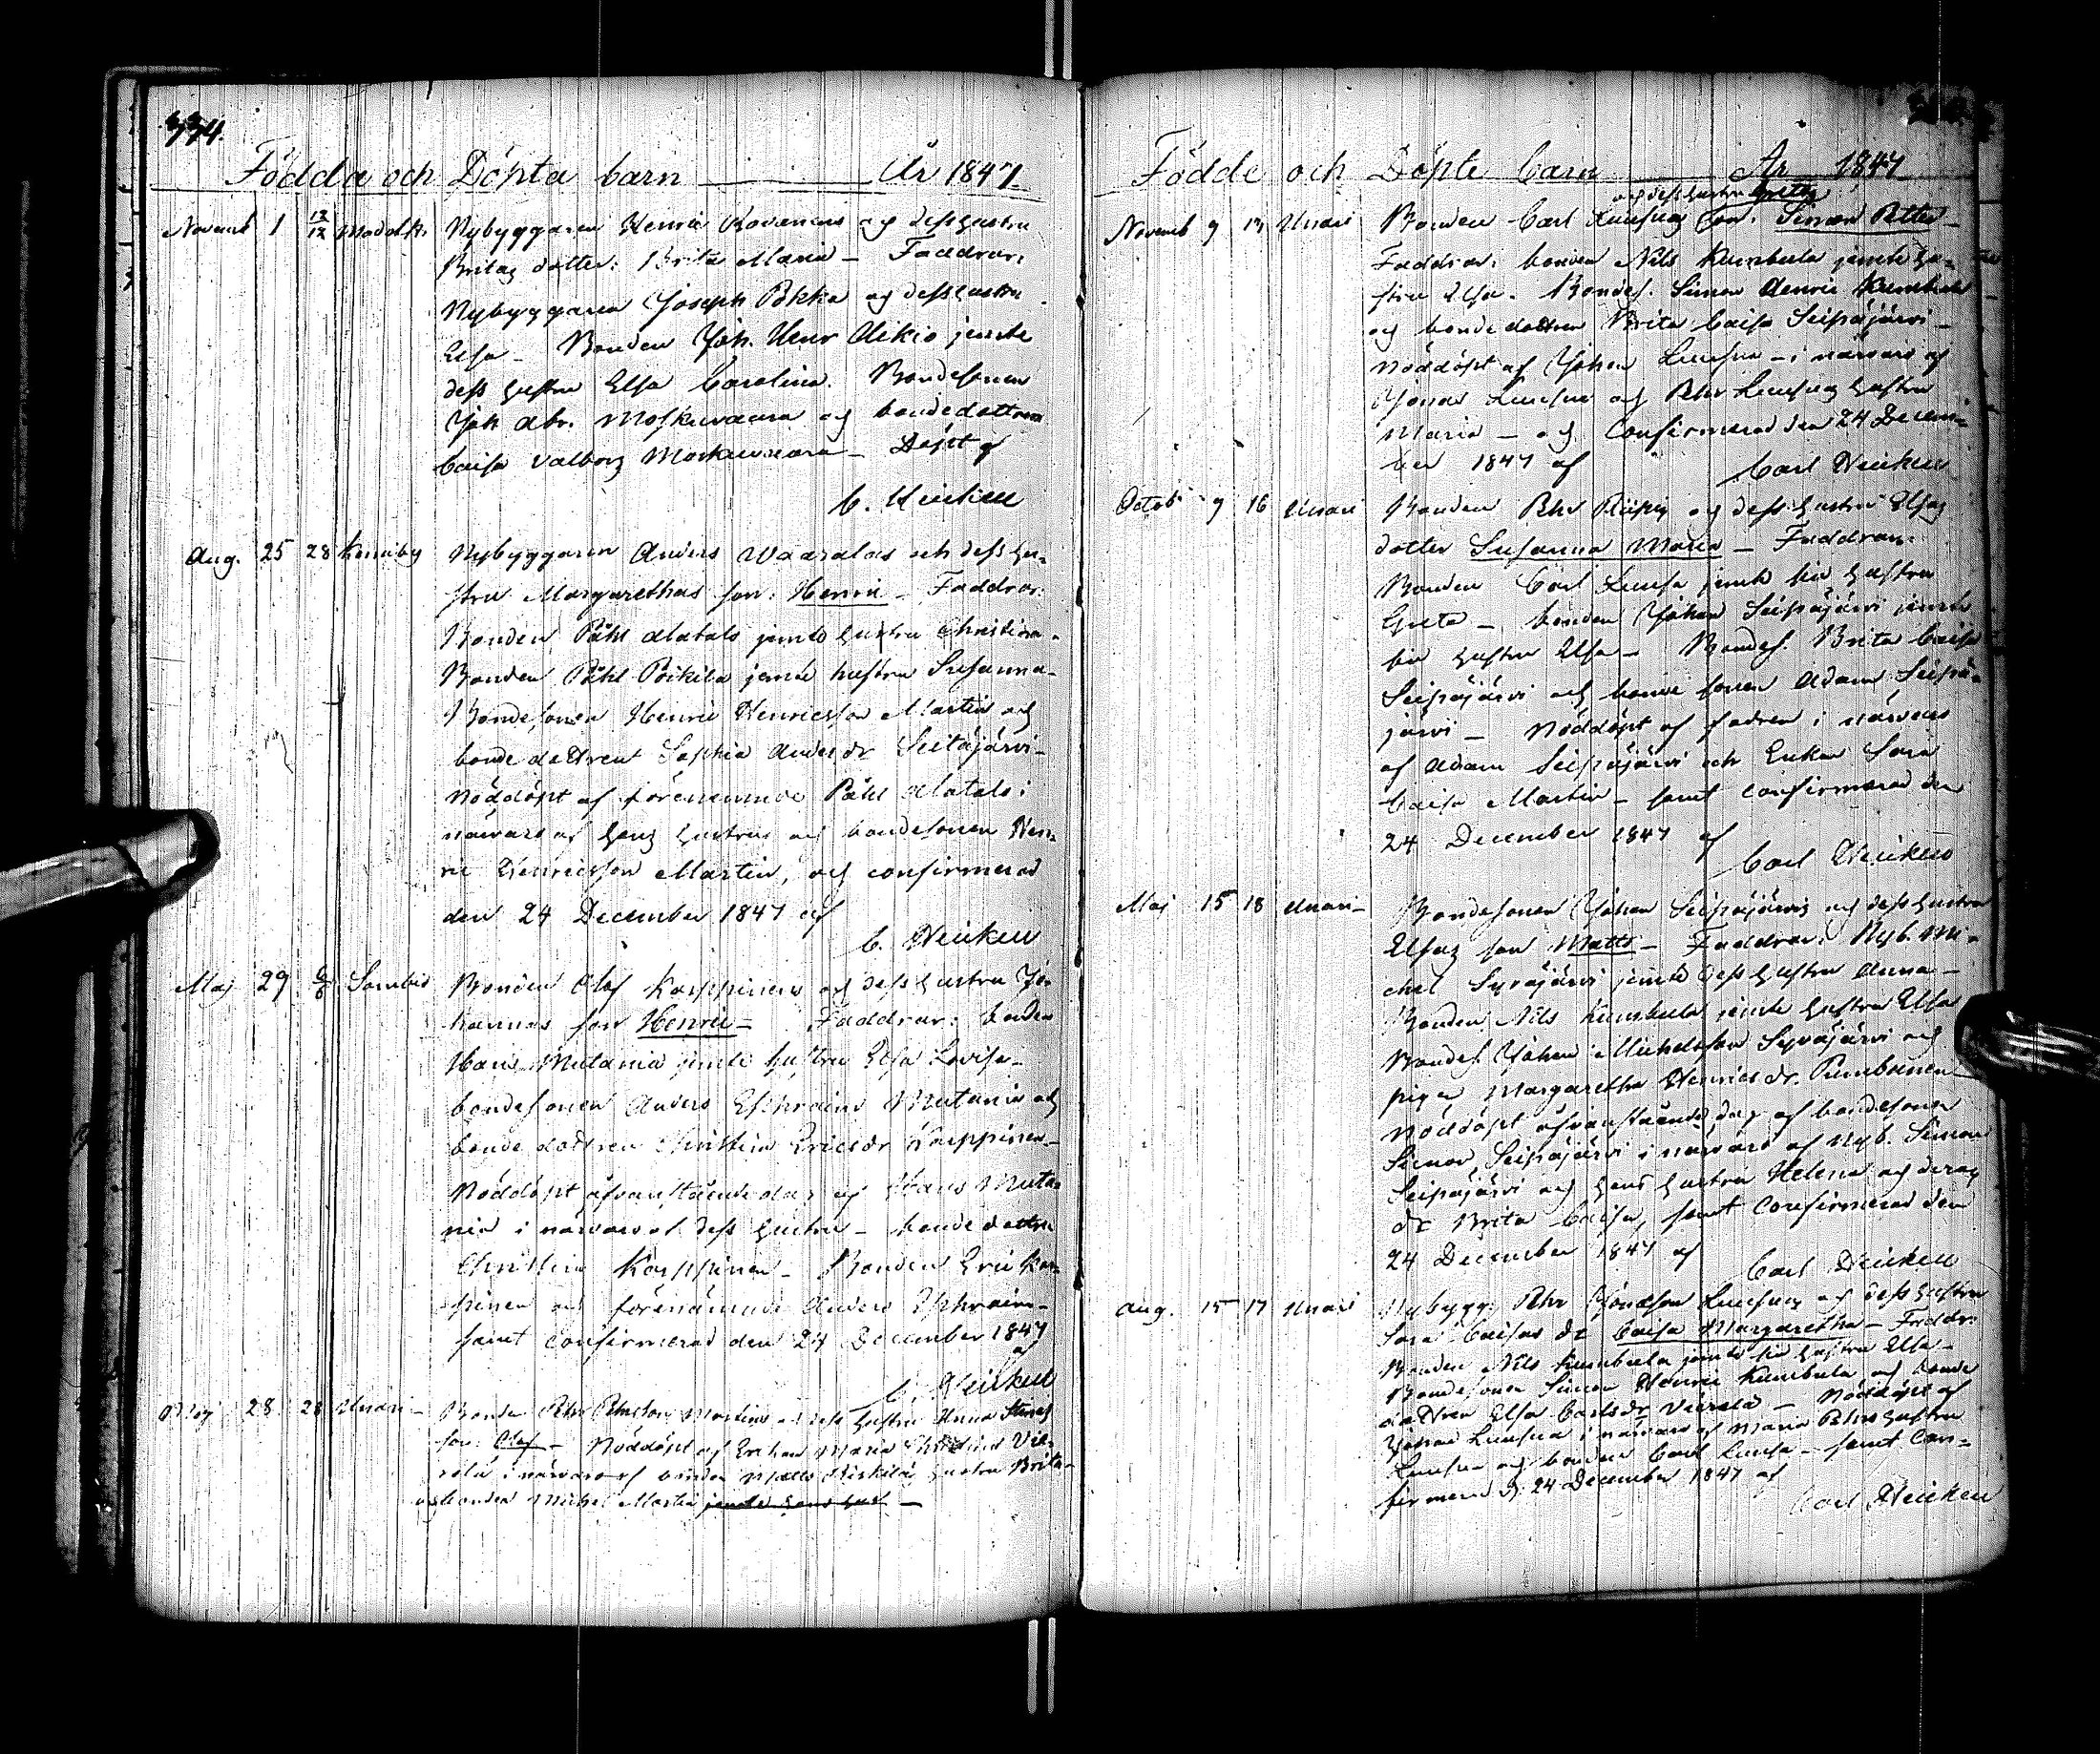 334.
Födda och Döpta barn År 1847.
Novemb 1 12/12
Nybyggaren Henric och dess hustru
Britas dotter: Brita Maria – Faddrar:
Nybyggaren Joseph Pokka och dess hustru
Elsa – Bonden Joh. Henr Aikio jemte
dess hustru Elsa Carolina. Bondesonen
Joh Abr. Moskuvaara och bondedottren
Caisa Valborg Moskuvaara – Döpt af
C. Heikell
Aug. 25 28
Nybyggaren Anders Vaaralas och dess hu-
stru Margarethas son: Henric – Faddrar:
Bonden Påhl Alatalo jemte hustru Christina –
Bonden Påhl Poikila jemte hustru Susanna –
Bondesonen Henric Henricsson Martin och
bondedottren Sophia Andersdr
Nöddöpt af förenämnde Påhl Alatalo i
närvaro af hans hustru och bondesonen Hen-
ric Henricsson Martin, och confirmerad
den 24 December 1847 af
C. Heikell
Maj 29 6/6 Sombio
Bonden Olof Karppinens och dess hustru Jo-
hannas son Henric – Faddrar: bonden
Hans Mutenia jemte hustru Elsa Lovisa –
bondesonen Anders Ephraim Mutenia och
bondedottren Christina Ericsdr Karppinen –
Nöddöpt ofvanstående dag af Hans Mute-
nia i närvaro af dess hustru – bondedottren
Christina Karppinen – Bonden Eric Kar-
pinen och förenämnde Anders Ephraim –
samt confirmerad den 24 December 1847
af
C. Heikell
Maj 28 28 Unari –
Bonden Pehr Pehrsson Martins och dess hustru Anna
son: Olof – Nöddöpt af Enkan Maria
i närvaro af bonden hustru Brita –
och bonden Michel Martin jemte hans hust –
Födde och Döpte barn År 1847
och dess hustru Gretas
Novemb 9 Unari
Bonden Carl Luusuas son: Simon Petter –
Faddrar: bonden Nils Kumbula jemte hu-
stru Elsa. Bondes. Simon Henric Kumbula
och bondedottren Brita Caisa Seipäjärvi –
Nöddöpt af Johan Luusua – i närvaro af
Jonas Luusua och Pehr Luusuas hustru
Maria – och Confirmerad den 24 Decem-
ber 1847 af Carl Heikell
Octob 9 16 Unari
Bonden Pehr och dess hustru Elsas
dotter Susanna Maria – Faddrar:
Bonden Carl Luusua jemte sin hustru
Greta – bonden Johan Seipäjärvi jemte
sin hustru Elsa – Bondes. Brita Caisa
Seipäjärvi och bondesonen Adam Seipä-
järvi – Nöddöpt af fadren i närvaro
af Adam Seipäjärvi och Enkan Sara
Caisa Martin – samt confirmerad den
24 December 1847 af
Carl Heikell
Maj 15 18 Unari –
Bondesonen Johan Seipäjärvis och dess hustru
Elsas son Matts – Faddrar: Nyb. Mi-
chel Syväjärvi jemte dess hustru Anna –
Bonden Nils Kumbula jemte hustru Elsa
Bondes. Johan Michelsson Syväjärvi och
pigan Margaretha Henricsdr.
Nöddöpt ofvanstående dag af bondesonen
Simon Seipäjärvi i närvaro af Nyb. Simon
Seipäjärvi och hans hustru Helena och deras
dr Brita Caisa, samt Confirmerad den
24 December 1847 af
Carl Heikell
Aug. 15 17 Unari
Nybygg. Pehr Jonasson Luusuas och dess hustru
Sara Caisas dr Caisa Margaretha – Faddr:
Bonden Nils Kumbula jemte sin hustru Elsa –
Bondesonen Simon Henric Kumbula och bonde
dottren Elsa Carlsdr – Nöddöpt af
Johan Luusua i närvaro af Maria Pehrs hustru
Luusua och bonden Carl Luusua – samt Con-
firmerad d. 24 December 1847 af
Carl Heikell